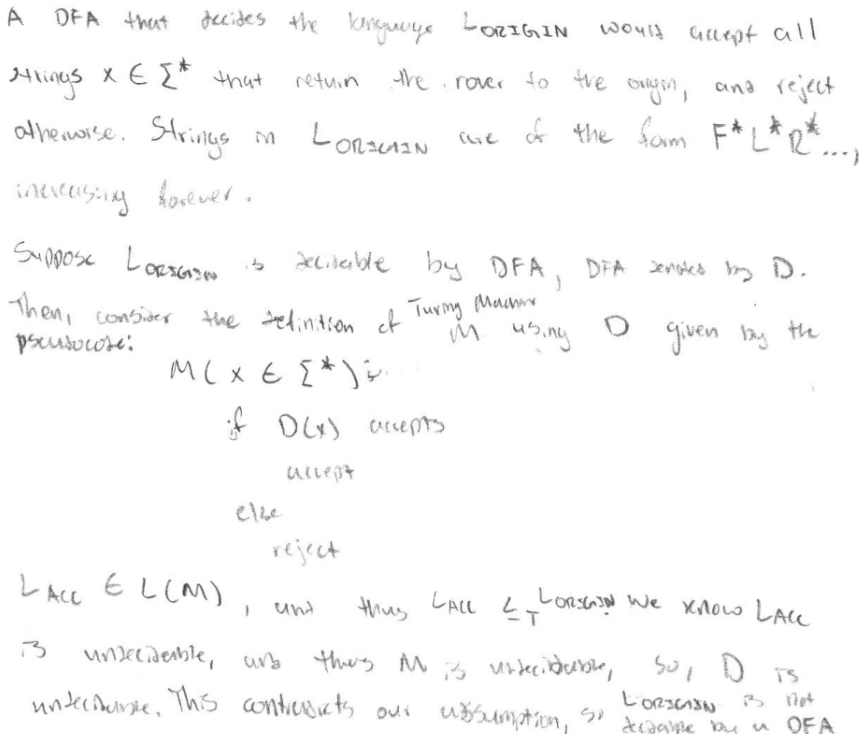 A DFA that decides the language L_ORIGIN would accept all
strings x ∈ Σ* that return the rover to the origin, and reject
otherwise. Strings in L_ORIGIN are of the form F* L* R* ...,
increasing forever.
Suppose L_ORIGIN is decidable by DFA, DFA denoted by D.
Then, consider the definition of Turing Machine M using D given by the
pseudocode:
M(x ∈ Σ*):
if D(x) accepts
accept
else
reject
L_ACC ∈ L(M), and thus L_ACC ≤_T L_ORIGIN We know L_ACC
is undecidable, and thus M is undecidable, so, D is
undecidable. This contradicts our assumption, so L_ORIGIN is not
decidable by a DFA